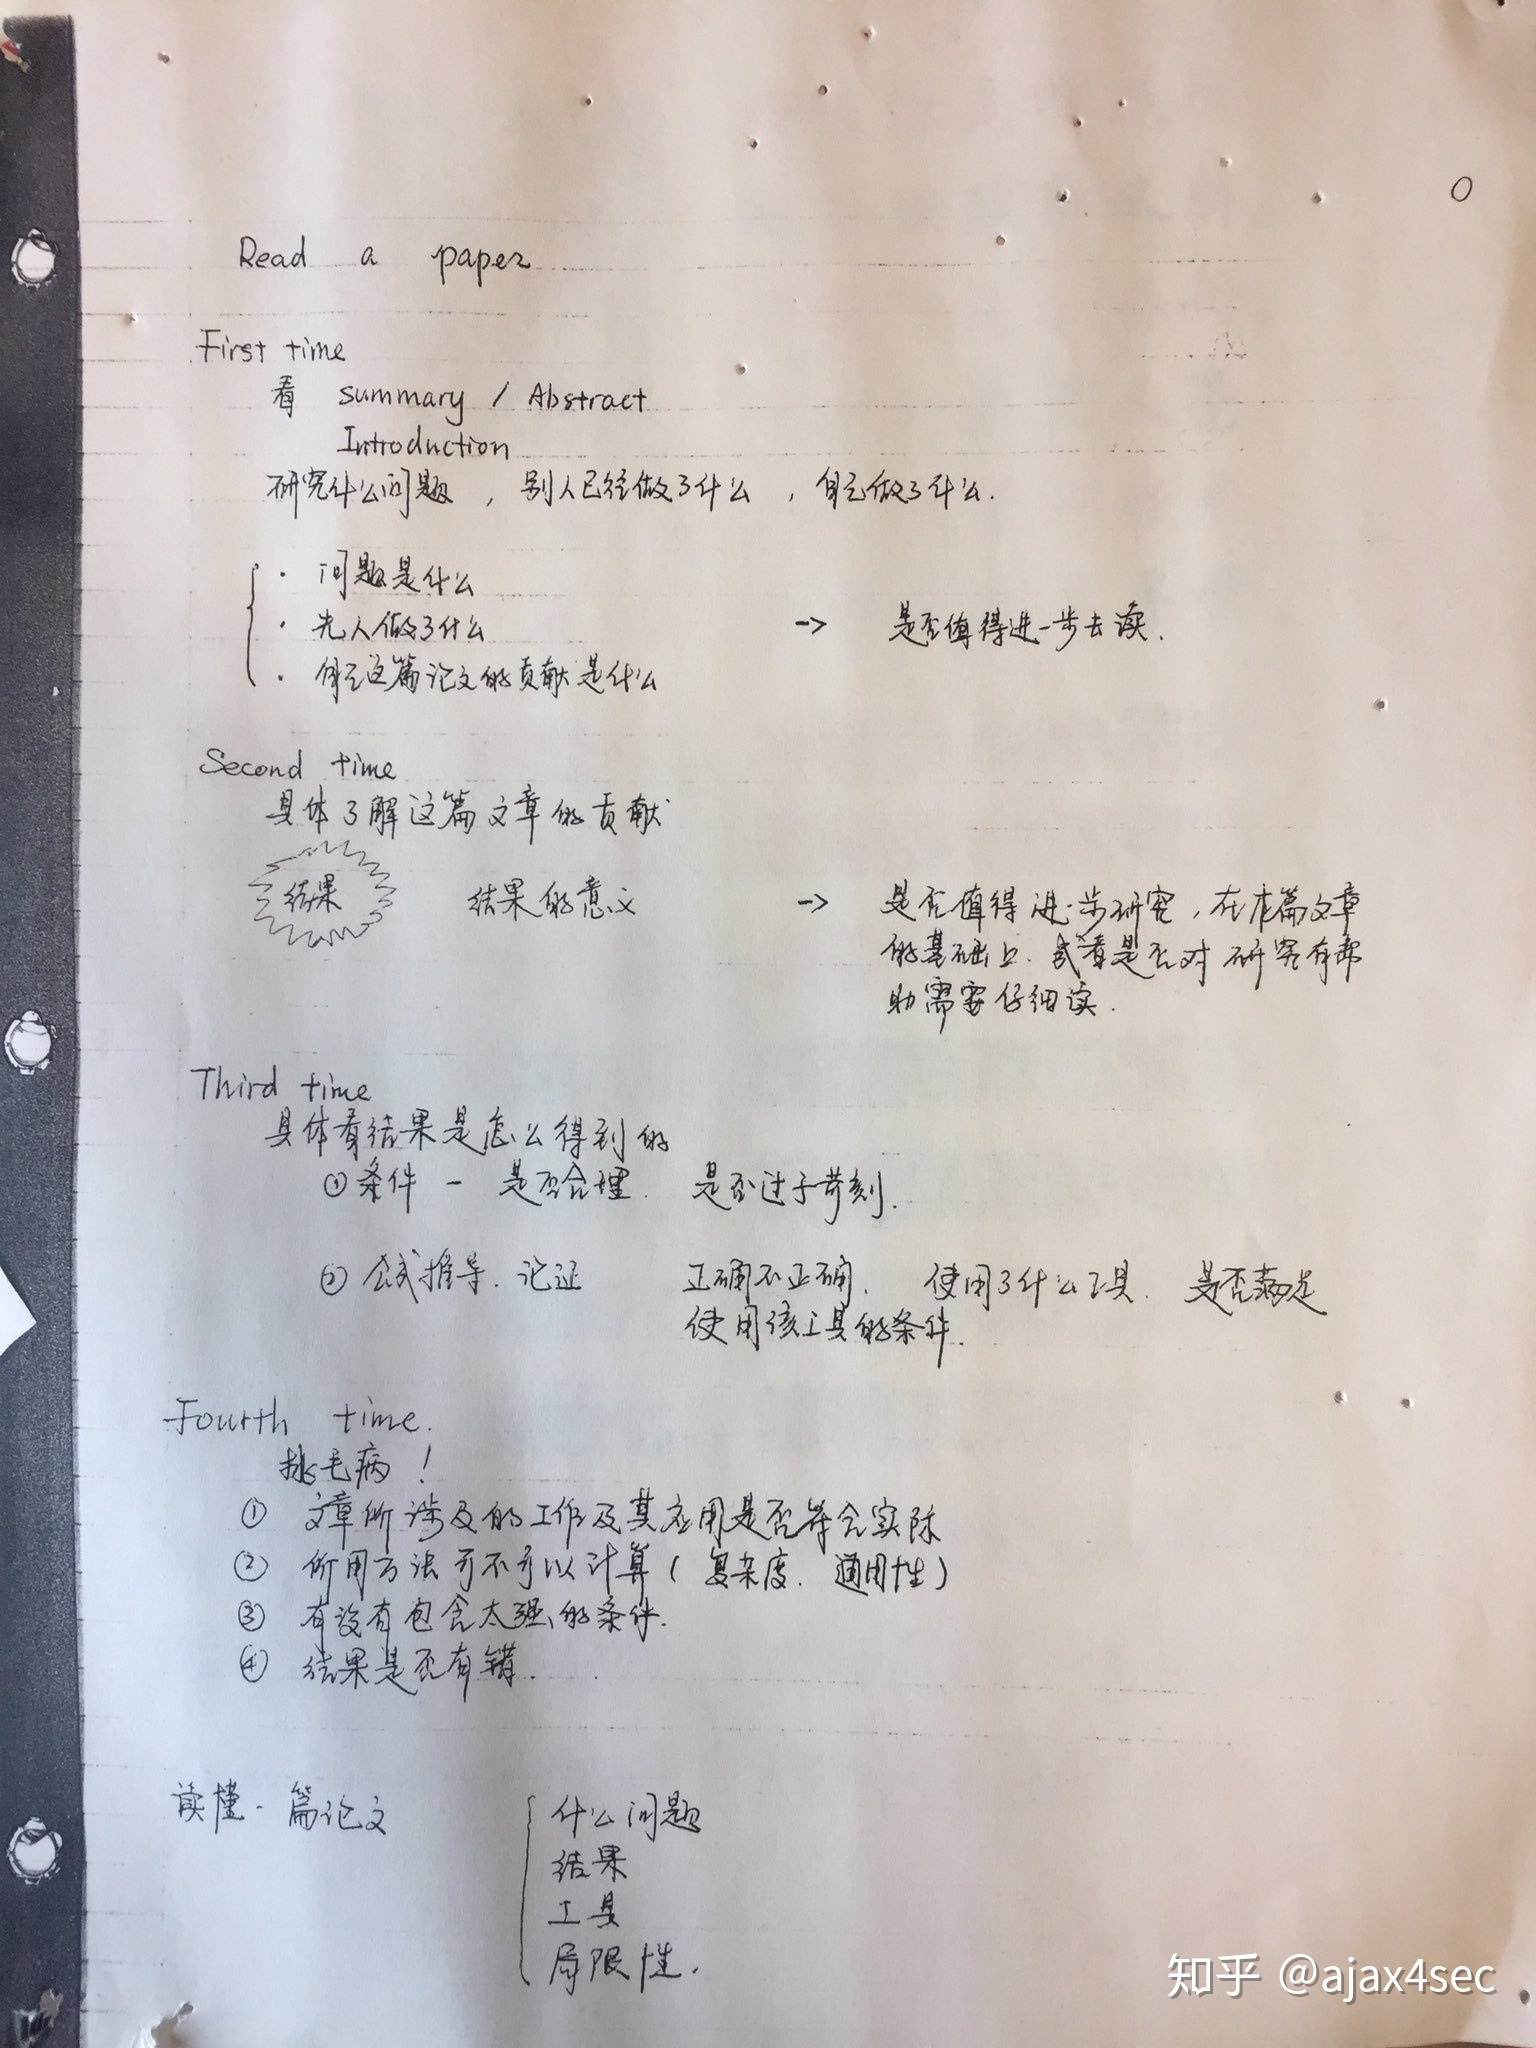 O
Read a paper
First time
看 summary / Abstract
Introduction
研究什么问题，别人已经做了什么，自己做了什么.
· 问题是什么
· 先人做了什么 -> 是否值得进一步去读.
· 自己这篇论文的贡献是什么
Second time
具体了解这篇文章的贡献
结果 结果的意义 -> 是否值得进一步研究，在本篇文章
的基础上. 或者是否对研究有帮
助需要仔细读.
Third time
具体看结果是怎么得到的
① 条件 - 是否合理. 是否过于苛刻.
② 公式推导. 论证 正确不正确. 使用了什么工具. 是否满足
使用该工具的条件.
Fourth time.
挑毛病！
① 文章所涉及的工作及其应用是否符合实际
② 所用方法可不可以计算（复杂度. 通用性）
③ 有没有包含太强的条件.
④ 结果是否有错.
读懂一篇论文
什么问题
结果
工具
局限性.
知乎 @ajax4sec